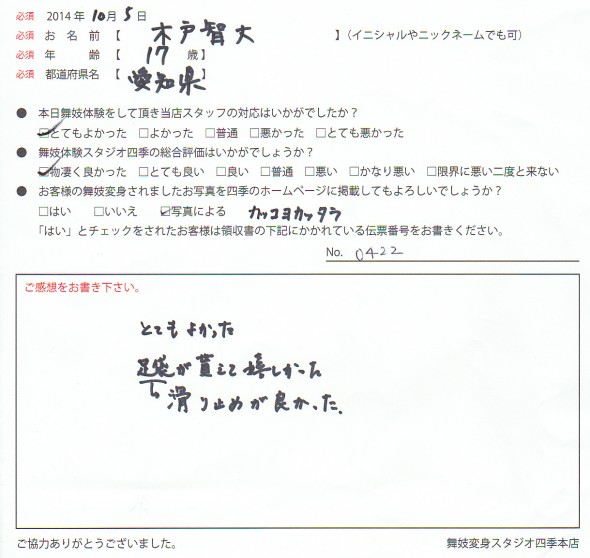 必須 2014年 10月 5日
必須 お 名 前 【 木戸智大 】(イニシャルやニックネームでも可)
必須 年 齢 【 17 歳】
必須 都道府県名 【 愛知県 】
● 本日舞妓体験をして頂き当店スタッフの対応はいかがでしたか?
☑とてもよかった □よかった □普通 □悪かった □とても悪かった
● 舞妓体験スタジオ四季の総合評価はいかがでしょうか?
☑物凄く良かった □とても良い □良い □普通 □悪い □かなり悪い □限界に悪い二度と来ない
● お客様の舞妓変身されましたお写真を四季のホームページに掲載してもよろしいでしょうか?
□はい □いいえ ☑写真による カッコヨカッタラ
「はい」とチェックをされたお客様は領収書の下記にかかれている伝票番号をお書きください。
No. 0422
ご感想をお書き下さい。
とてもよかった
足袋が貰えて嬉しかった
↳滑り止めが良かった.
ご協力ありがとうございました。
舞妓変身スタジオ四季本店